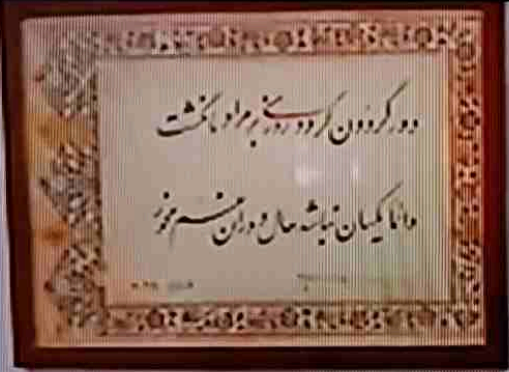 دور گردون گر دو روزی بر مراد ما نگشت
دائما یکسان نباشد حال دوران غم مخور